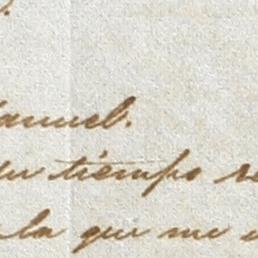 anuel.
su tiempo re
la que me